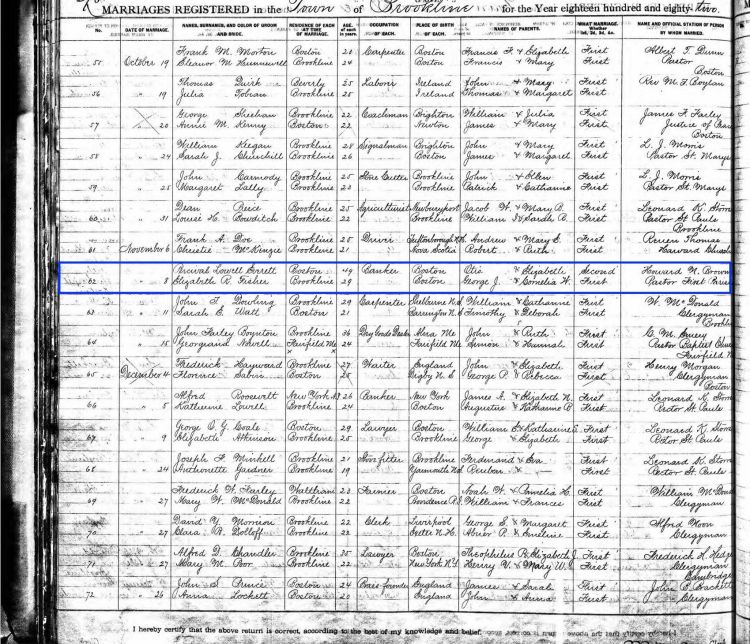 MARRIAGES REGISTERED in the Town of Brookline for the Year eighteen hundred and eighty-two.
DATE OF MARRIAGE. NAMES, SURNAMES, AND COLOR OF GROOM AND BRIDE. RESIDENCE OF EACH AT TIME OF MARRIAGE. AGE of each in years. OCCUPATION OF EACH. PLACE OF BIRTH OF EACH. NAMES OF PARENTS. WHAT MARRIAGE. Whether 1st, 2d, 3d, &c. NAME AND OFFICIAL STATION OF PERSON BY WHOM MARRIED.
Frank M. Morton Boston 28 Carpenter Boston Francis F. & Elizabeth First Albert T. Dunn
55 October 19 Eleanor M. Boston Brookline 24 Boston Francis & Mary First Pastor
Boston
Thomas Quirk Beverly 25 Laborer Ireland John & Mary First Rev M. T. Boylan
56 " 19 Julia Tobian Brookline 25 Ireland Thomas & Margaret First
George Sheehan Brookline 22 Coachman Brighton William & Julia First James F. Farley
57 " 20 Annie M. Kenny Boston 22 Newton James & Mary First Justice of Peace
Boston
William Keegan Brookline 28 Signalman Brighton John & Mary First L. J. Morris
58 " 24 Sarah J. Churchill Brookline 26 Boston James & Margaret First Pastor St. Marys
John Carmody Brookline 25 Stone Cutter Brookline John & Ellen First L. J. Morris
59 " 25 Margaret Lally Brookline 20 Brookline Patrick & Catharine First Pastor St. Marys
Dean Peirce Brookline 25 Agriculturist Newburyport Jacob W. & Mary B. First Leonard K. Storrs
60 " 31 Louise H. Bowditch Brookline 22 Brookline William I. & Sarah B. First Pastor St. Pauls
Brookline
Frank A. Doe Brookline 25 Driver Tuftonborough N.H. Andrew & Mary S. First Reuen Thomas
61 November 6 Christie McKenzie Brookline 21 Nova Scotia Robert & Ruth First Harvard Church
Percival Lowell Everett Boston 49 Banker Boston Otis & Elizabeth Second Howard N. Brown
62 " 8 Elizabeth R. Fisher Brookline 29 Boston George J. & Cornelia W. First Pastor First Parish
John F. Dowling Brookline 29 Carpenter William & Catharine First W. McDonald
63 " 11 Sarah E. Watt Boston 21 Timothy & Deborah First Clergyman
Brookline
John Farley Boynton Brookline 36 Dry Goods Dealer Alna Me John & Ruth First G. M. Emery
64 " 15 Georgiana Nowell Fairfield Me 24 Fairfield Me Simon & Hannah First Pastor Baptist Church
Fairfield Me
Frederick Hayward Brookline 27 Waiter England John & Elizabeth First Henry Morgan
65 December 4 Florence Sabin Boston 25 Digby N.S. George P. & Rebecca First Clergyman
Boston
Alfred Roosevelt New York N.Y. 26 Banker New York James A. & Elizabeth N. First Leonard K. Storrs
66 " 5 Katherine Lowell Brookline 24 Boston Augustus & Katharine B. First Pastor St. Pauls
George O. G. Coale Boston 29 Lawyer Boston William E. & Katharine First Leonard K. Storrs
67 " 9 Elizabeth Atkinson Brookline 25 Brookline George & Elizabeth First Pastor St. Pauls
Joseph F. Minkell Brookline 21 Stove fitter Brookline Ferdinand & Eva First Leonard K. Storrs
68 " 24 Anthonette Gardner Brookline 19 Yarmouth N.S. Reuben & — First Pastor St. Pauls
Frederick W. Farley Waltham 23 Farmer Boston Noah W. & Amelia H. First William McDonald
69 " 27 Mary W. McDonald Brookline 22 Providence R.I. William & Frances First Clergyman
David Y. Morrison Brookline 22 Clerk Liverpool George S. & Margaret First Alfred Noon
70 " 27 Clara A. Dolloff Brookline 22 Abner P. & Emeline First Clergyman
Alfred D. Chandler Brookline 35 Lawyer Boston Theophilus P. & Elizabeth J. First Frederick H. Hedge
71 " 27 Mary M. Poor Brookline 22 New York N.Y. Henry V. & Mary W. First Clergyman
Cambridge
John S. Prince Boston 24 Brass-founder England James & Sarah First John E. Brackett
72 " 26 Anna Lockett Boston 20 England John & Anna First Clergyman
I hereby certify that the above return is correct, according to the best of my knowledge and belief.